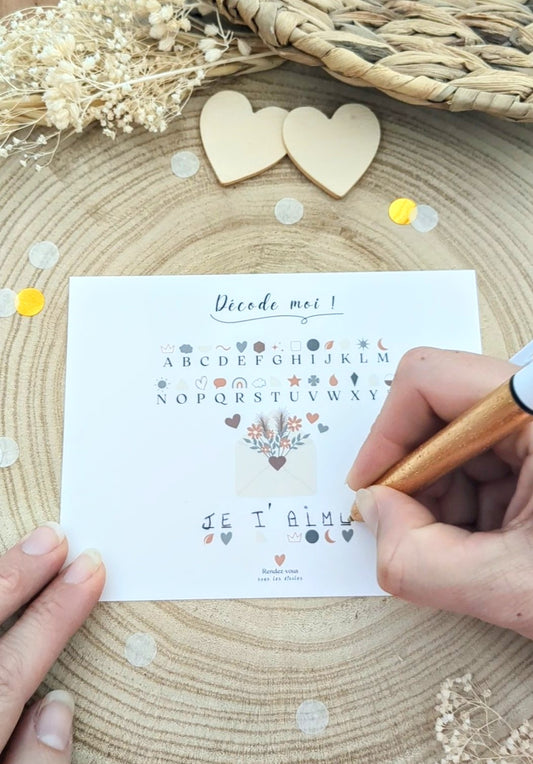 Décode moi !
A B C D E F G H I J K L M
N O P Q R S T U V W X Y
JE T'AIM
Rendez-vous
sous les étoiles